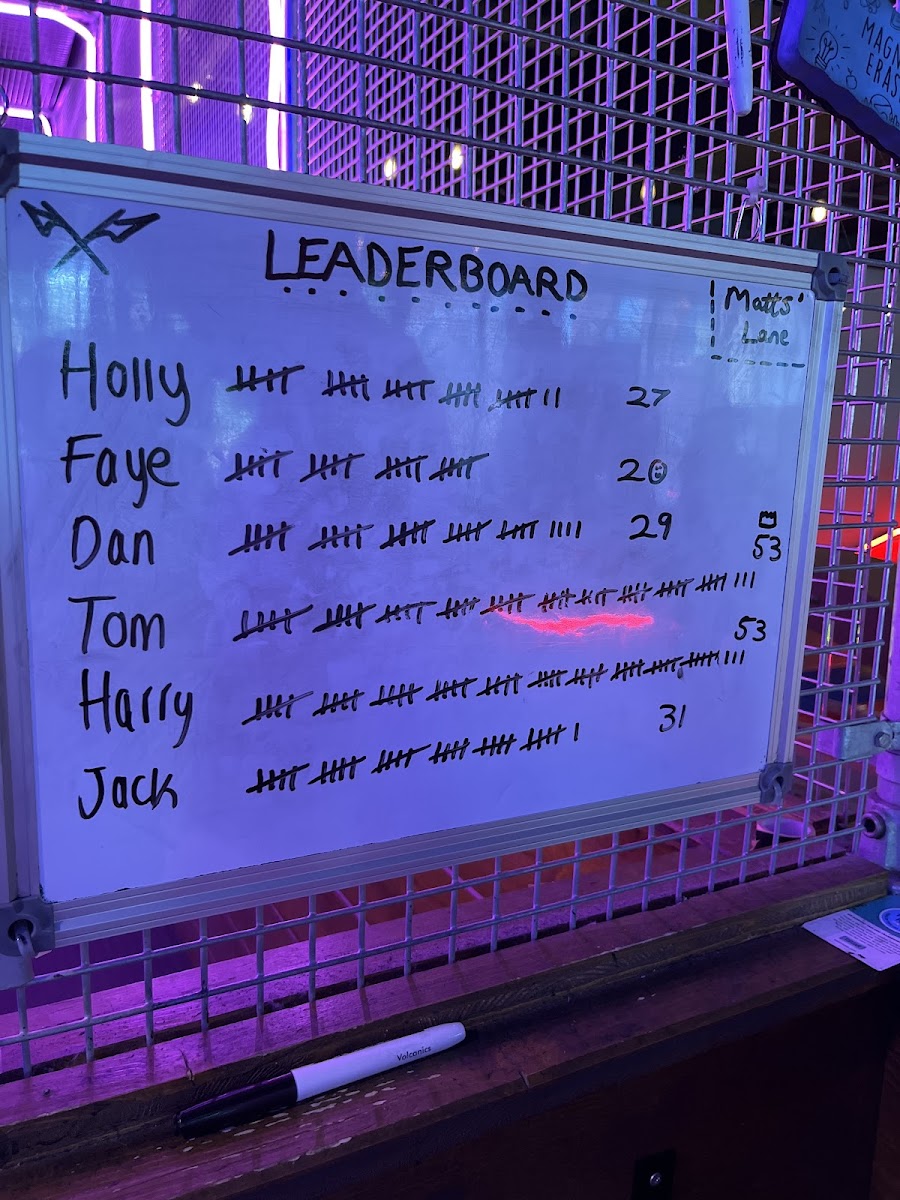 MAGN
ERAS
LEADERBOARD
Matts'
Lane
Holly 27
Faye 20
Dan 29
53
Tom
53
Harry
31
Jack
Volcanics